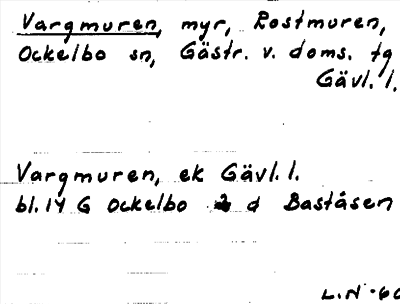 Vargmuren, myr, Rostmuren,
Ockelbo sn, Gästr. v. doms. tg
Gävl. l.
Vargmuren, ek Gävl. l.
bl. 14 G Ockelbo d Baståsen
L.N -60